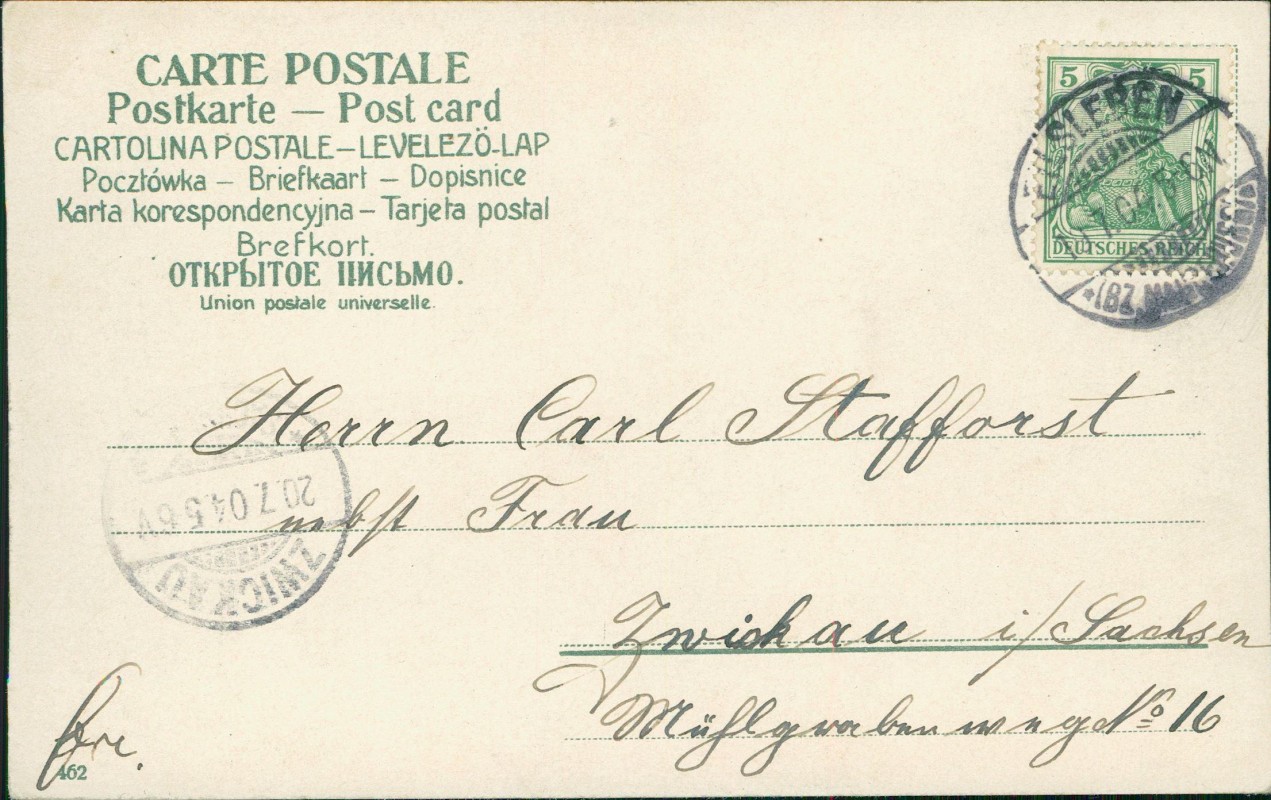 CARTE POSTALE
Postkarte — Post card
CARTOLINA POSTALE — LEVELEZÖ-LAP
Pocztówka — Briefkaart — Dopisnice
Karta korespondencyjna — Tarjeta postal
Brefkort.
ОТКРЫТОЕ ПИСЬМО.
Union postale universelle.
5 5
DEUTSCHES REICH
EILSLEBEN
7.04. 5-6N
*(BZ. MAGDEBURG)*
Herrn Carl Stafforst
nebst Frau
Zwickau i/Sachsen
Mühlgrabenweg No 16
20.7.04.5-6V.
ZWICKAU
462